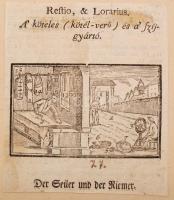 Restio, & Lorarius.
A' köteles (kötél-verő) és a' szíj-
gyártó.
77.
Der Seiler und der Riemer.